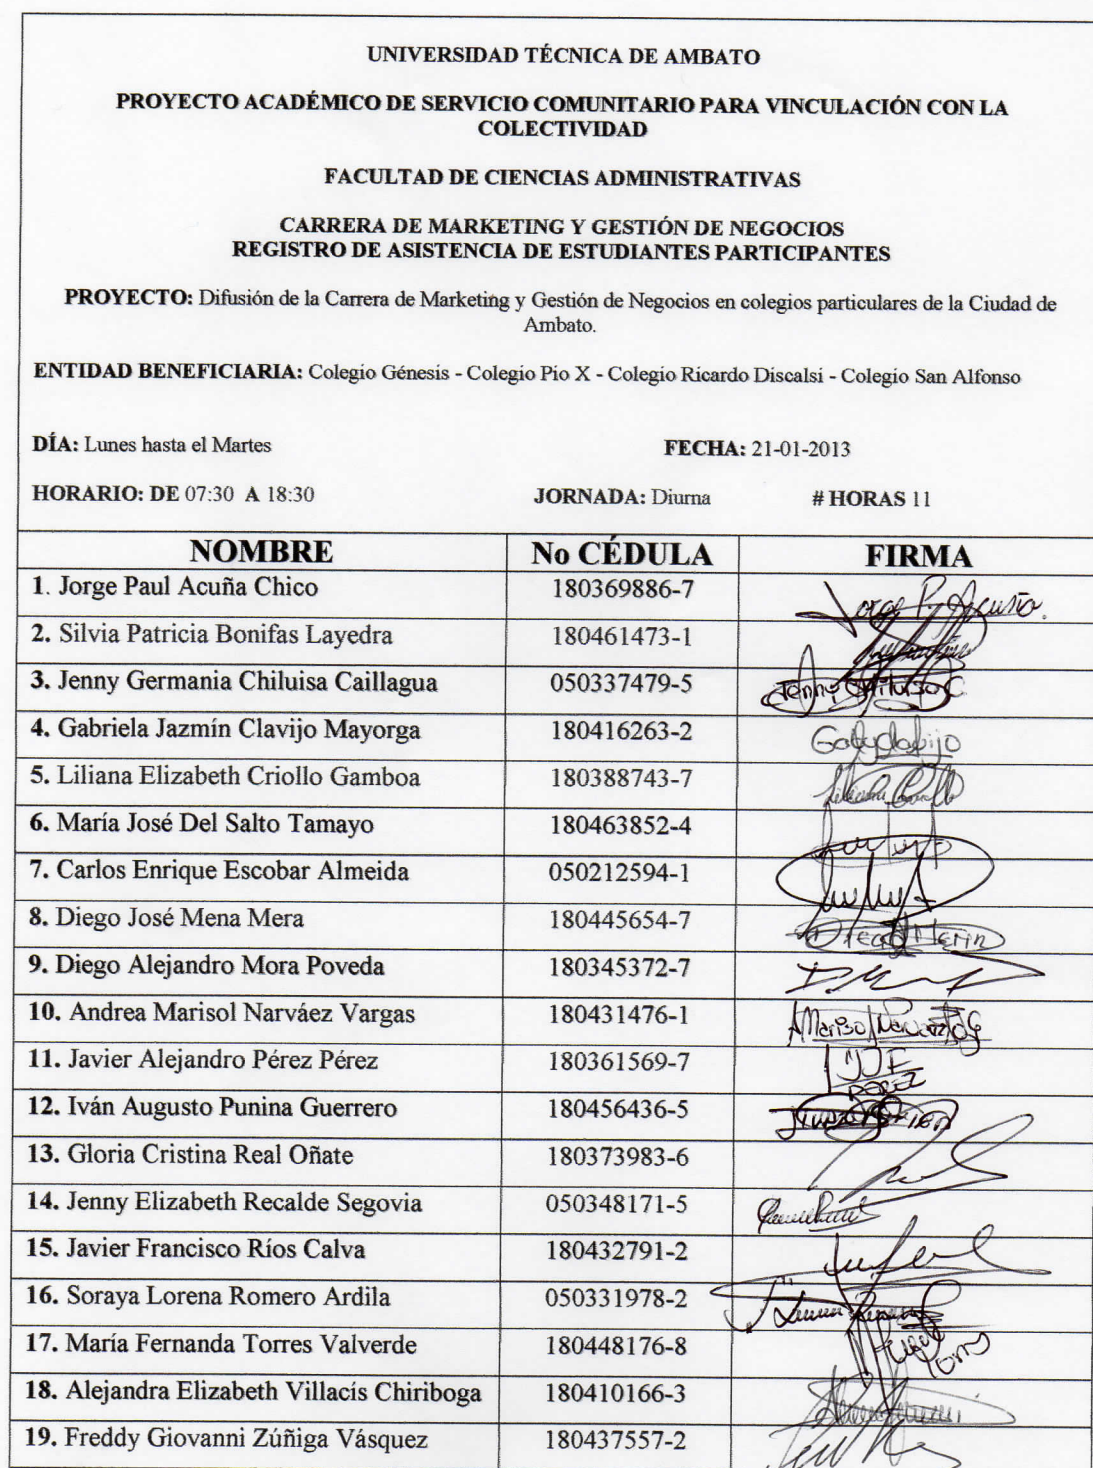 UNIVERSIDAD TÉCNICA DE AMBATO
PROYECTO ACADÉMICO DE SERVICIO COMUNITARIO PARA VINCULACIÓN CON LA
COLECTIVIDAD
FACULTAD DE CIENCIAS ADMINISTRATIVAS
CARRERA DE MARKETING Y GESTIÓN DE NEGOCIOS
REGISTRO DE ASISTENCIA DE ESTUDIANTES PARTICIPANTES
PROYECTO: Difusión de la Carrera de Marketing y Gestión de Negocios en colegios particulares de la Ciudad de
Ambato.
ENTIDAD BENEFICIARIA: Colegio Génesis - Colegio Pio X - Colegio Ricardo Discalsi - Colegio San Alfonso
DÍA: Lunes hasta el Martes FECHA: 21-01-2013
HORARIO: DE 07:30 A 18:30 JORNADA: Diurna # HORAS 11
NOMBRE No CÉDULA FIRMA
1. Jorge Paul Acuña Chico 180369886-7 Jorge P. Acuña
2. Silvia Patricia Bonifas Layedra 180461473-1
3. Jenny Germania Chiluisa Caillagua 050337479-5 Jenny Chiluisa C.
4. Gabriela Jazmín Clavijo Mayorga 180416263-2 Gabyclavijo
5. Liliana Elizabeth Criollo Gamboa 180388743-7
6. María José Del Salto Tamayo 180463852-4
7. Carlos Enrique Escobar Almeida 050212594-1
8. Diego José Mena Mera 180445654-7
9. Diego Alejandro Mora Poveda 180345372-7
10. Andrea Marisol Narváez Vargas 180431476-1
11. Javier Alejandro Pérez Pérez 180361569-7 PEREZ
12. Iván Augusto Punina Guerrero 180456436-5
13. Gloria Cristina Real Oñate 180373983-6
14. Jenny Elizabeth Recalde Segovia 050348171-5
15. Javier Francisco Ríos Calva 180432791-2
16. Soraya Lorena Romero Ardila 050331978-2
17. María Fernanda Torres Valverde 180448176-8
18. Alejandra Elizabeth Villacís Chiriboga 180410166-3
19. Freddy Giovanni Zúñiga Vásquez 180437557-2